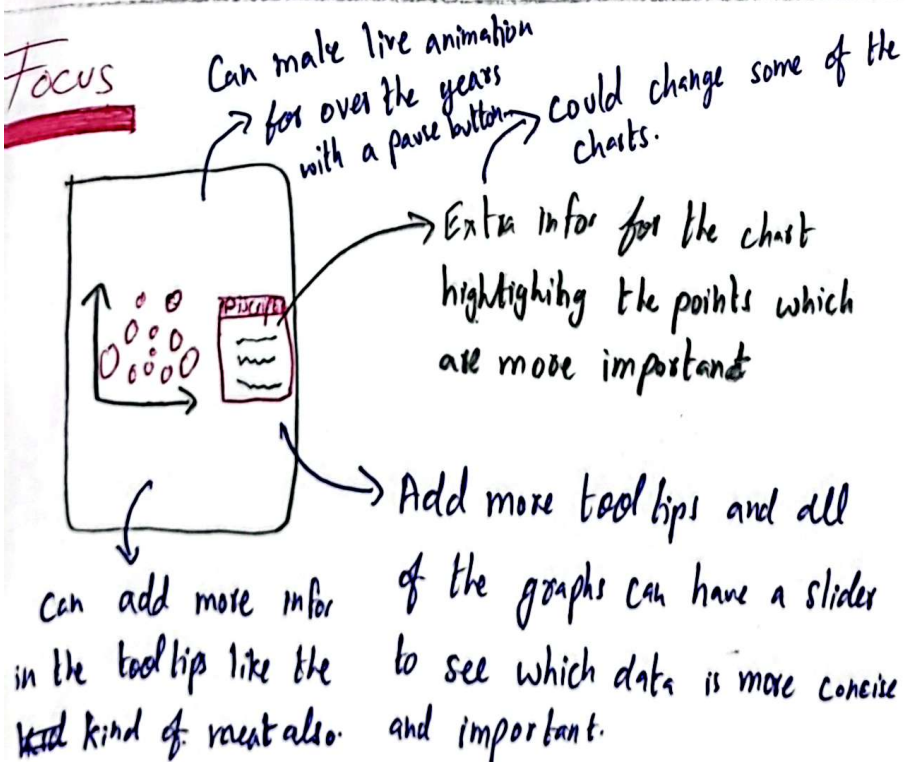 Focus
Can make live animation
for over the years
with a pause button.
could change some of the
charts.
Extra infor for the chart
highlighihg the points which
are more important
Add more tool tips and all
of the graphs can have a slider
to see which data is more concise
and important.
Can add more infor
in the tooltips like the
kind of meat also.